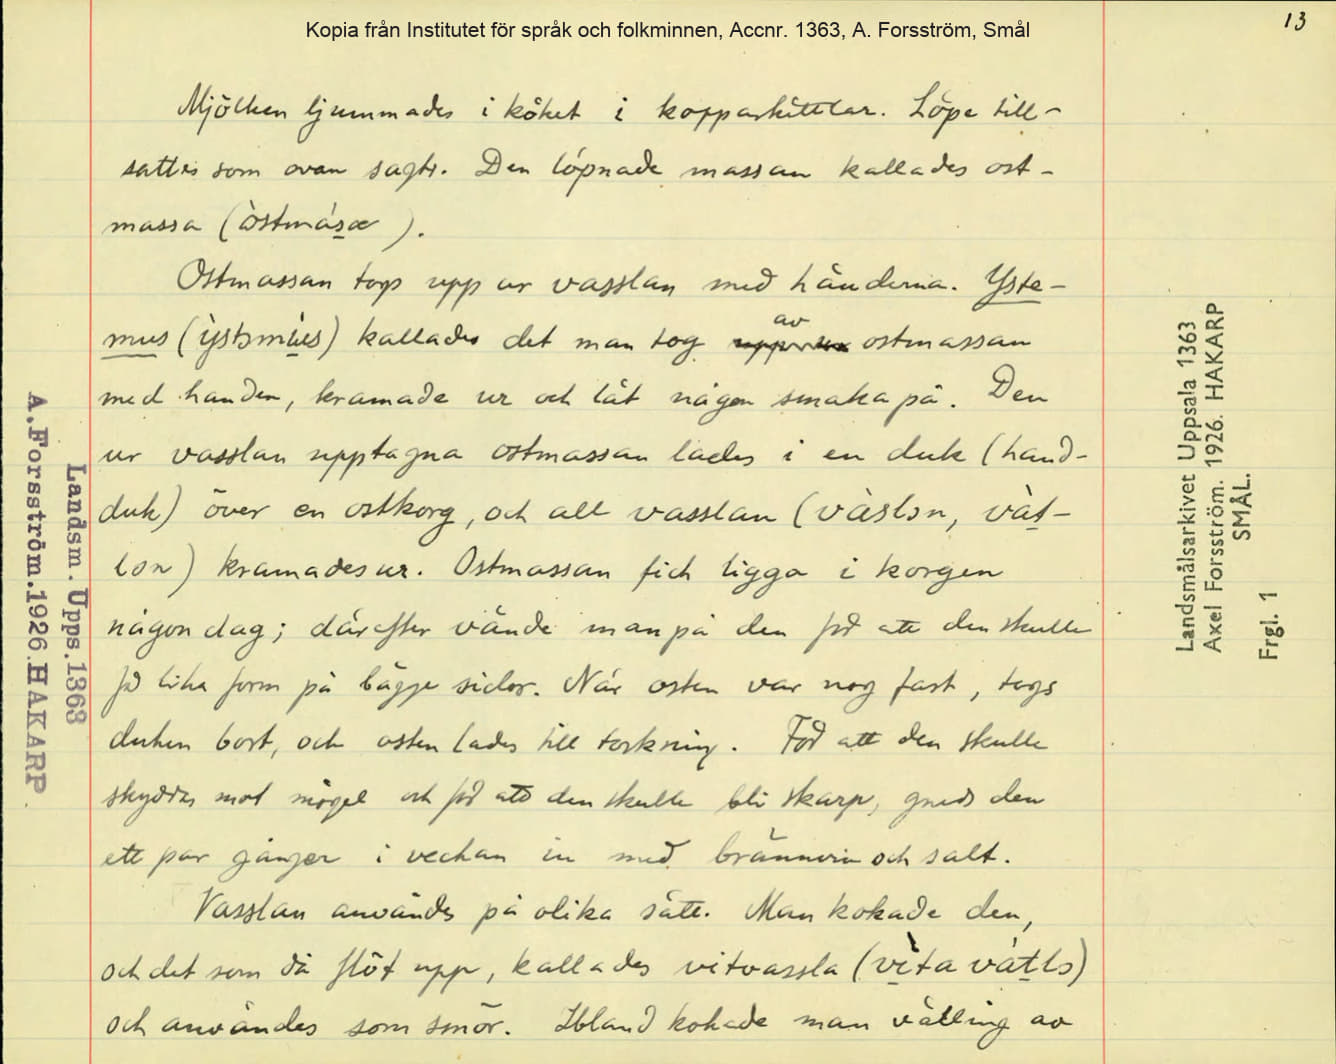 Kopia från Institutet för språk och folkminnen, Accnr. 1363, A. Forsström, Smål
13
Mjölken ljummades i köket i kopparkittlar. Löpe till-
sattes som ovan sagts. Den löpnade massan kallades ost-
massa (òstmásæ).
Ostmassan togs upp ur vasslan med händerna. Yste-
mus (ỳstəmùes) kallades det man tog av ostmassan
med handen, kramade ur och lät någon smaka på. Den
ur vasslan upptagna ostmassan lades i en duk (hand-
duk) över en ostkorg, och all vasslan (vàslən, vàt-
lən) kramades ur. Ostmassan fick ligga i korgen
någon dag; därefter vände man på den för att den skulle
få lika form på bägge sidor. När osten var nog fast, togs
duken bort, och osten lades till torkning. För att den skulle
skyddas mot mögel och för att den skulle bli skarp, gneds den
ett par gånger i veckan in med brännvin och salt.
Vasslan användes på olika sätt. Man kokade den,
och det som då flöt upp, kallades vitvassla (vìta vátlə)
och användes som smör. Ibland kokade man välling av
Landsm. Upps. 1363
A. Forsström. 1926. HAKARP.
Landsmålsarkivet Uppsala 1363
Axel Forsström. 1926. HAKARP
SMÅL.
Frgl. 1